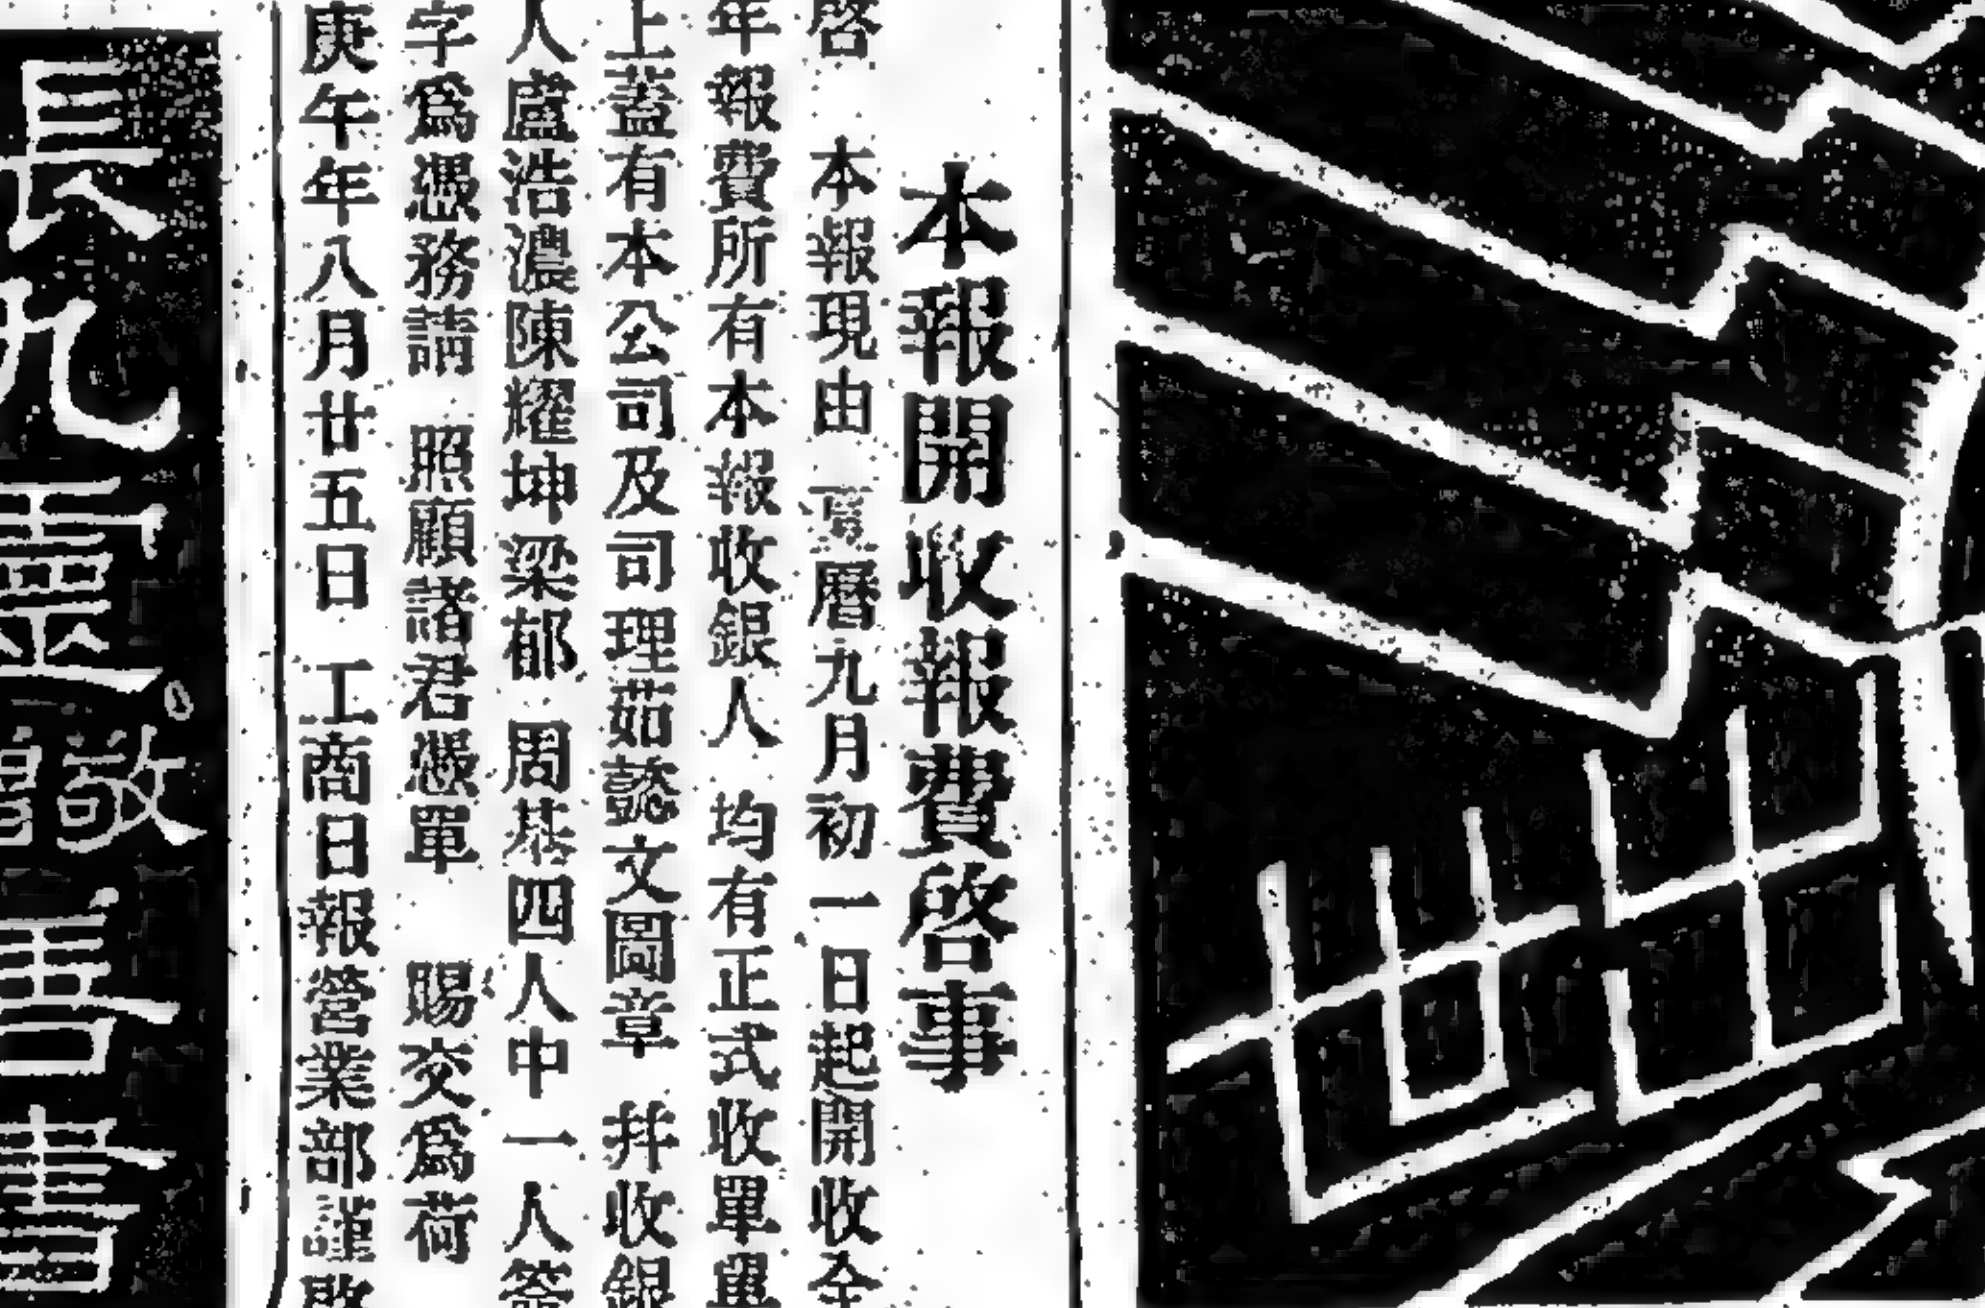 本報開收報費啓事
啓 本報現由 曆九月初一日起開收全
年報費所有本報收銀人 均有正式收單單
上蓋有本公司及司理茹懿文圖章 幷收銀
人盧浩濃陳耀坤梁郁 周基四人中一人簽
字爲憑務請 照顧諸君憑單 賜交爲荷
庚午年八月廿五日 工商日報營業部謹啟
長 靈 書
敬